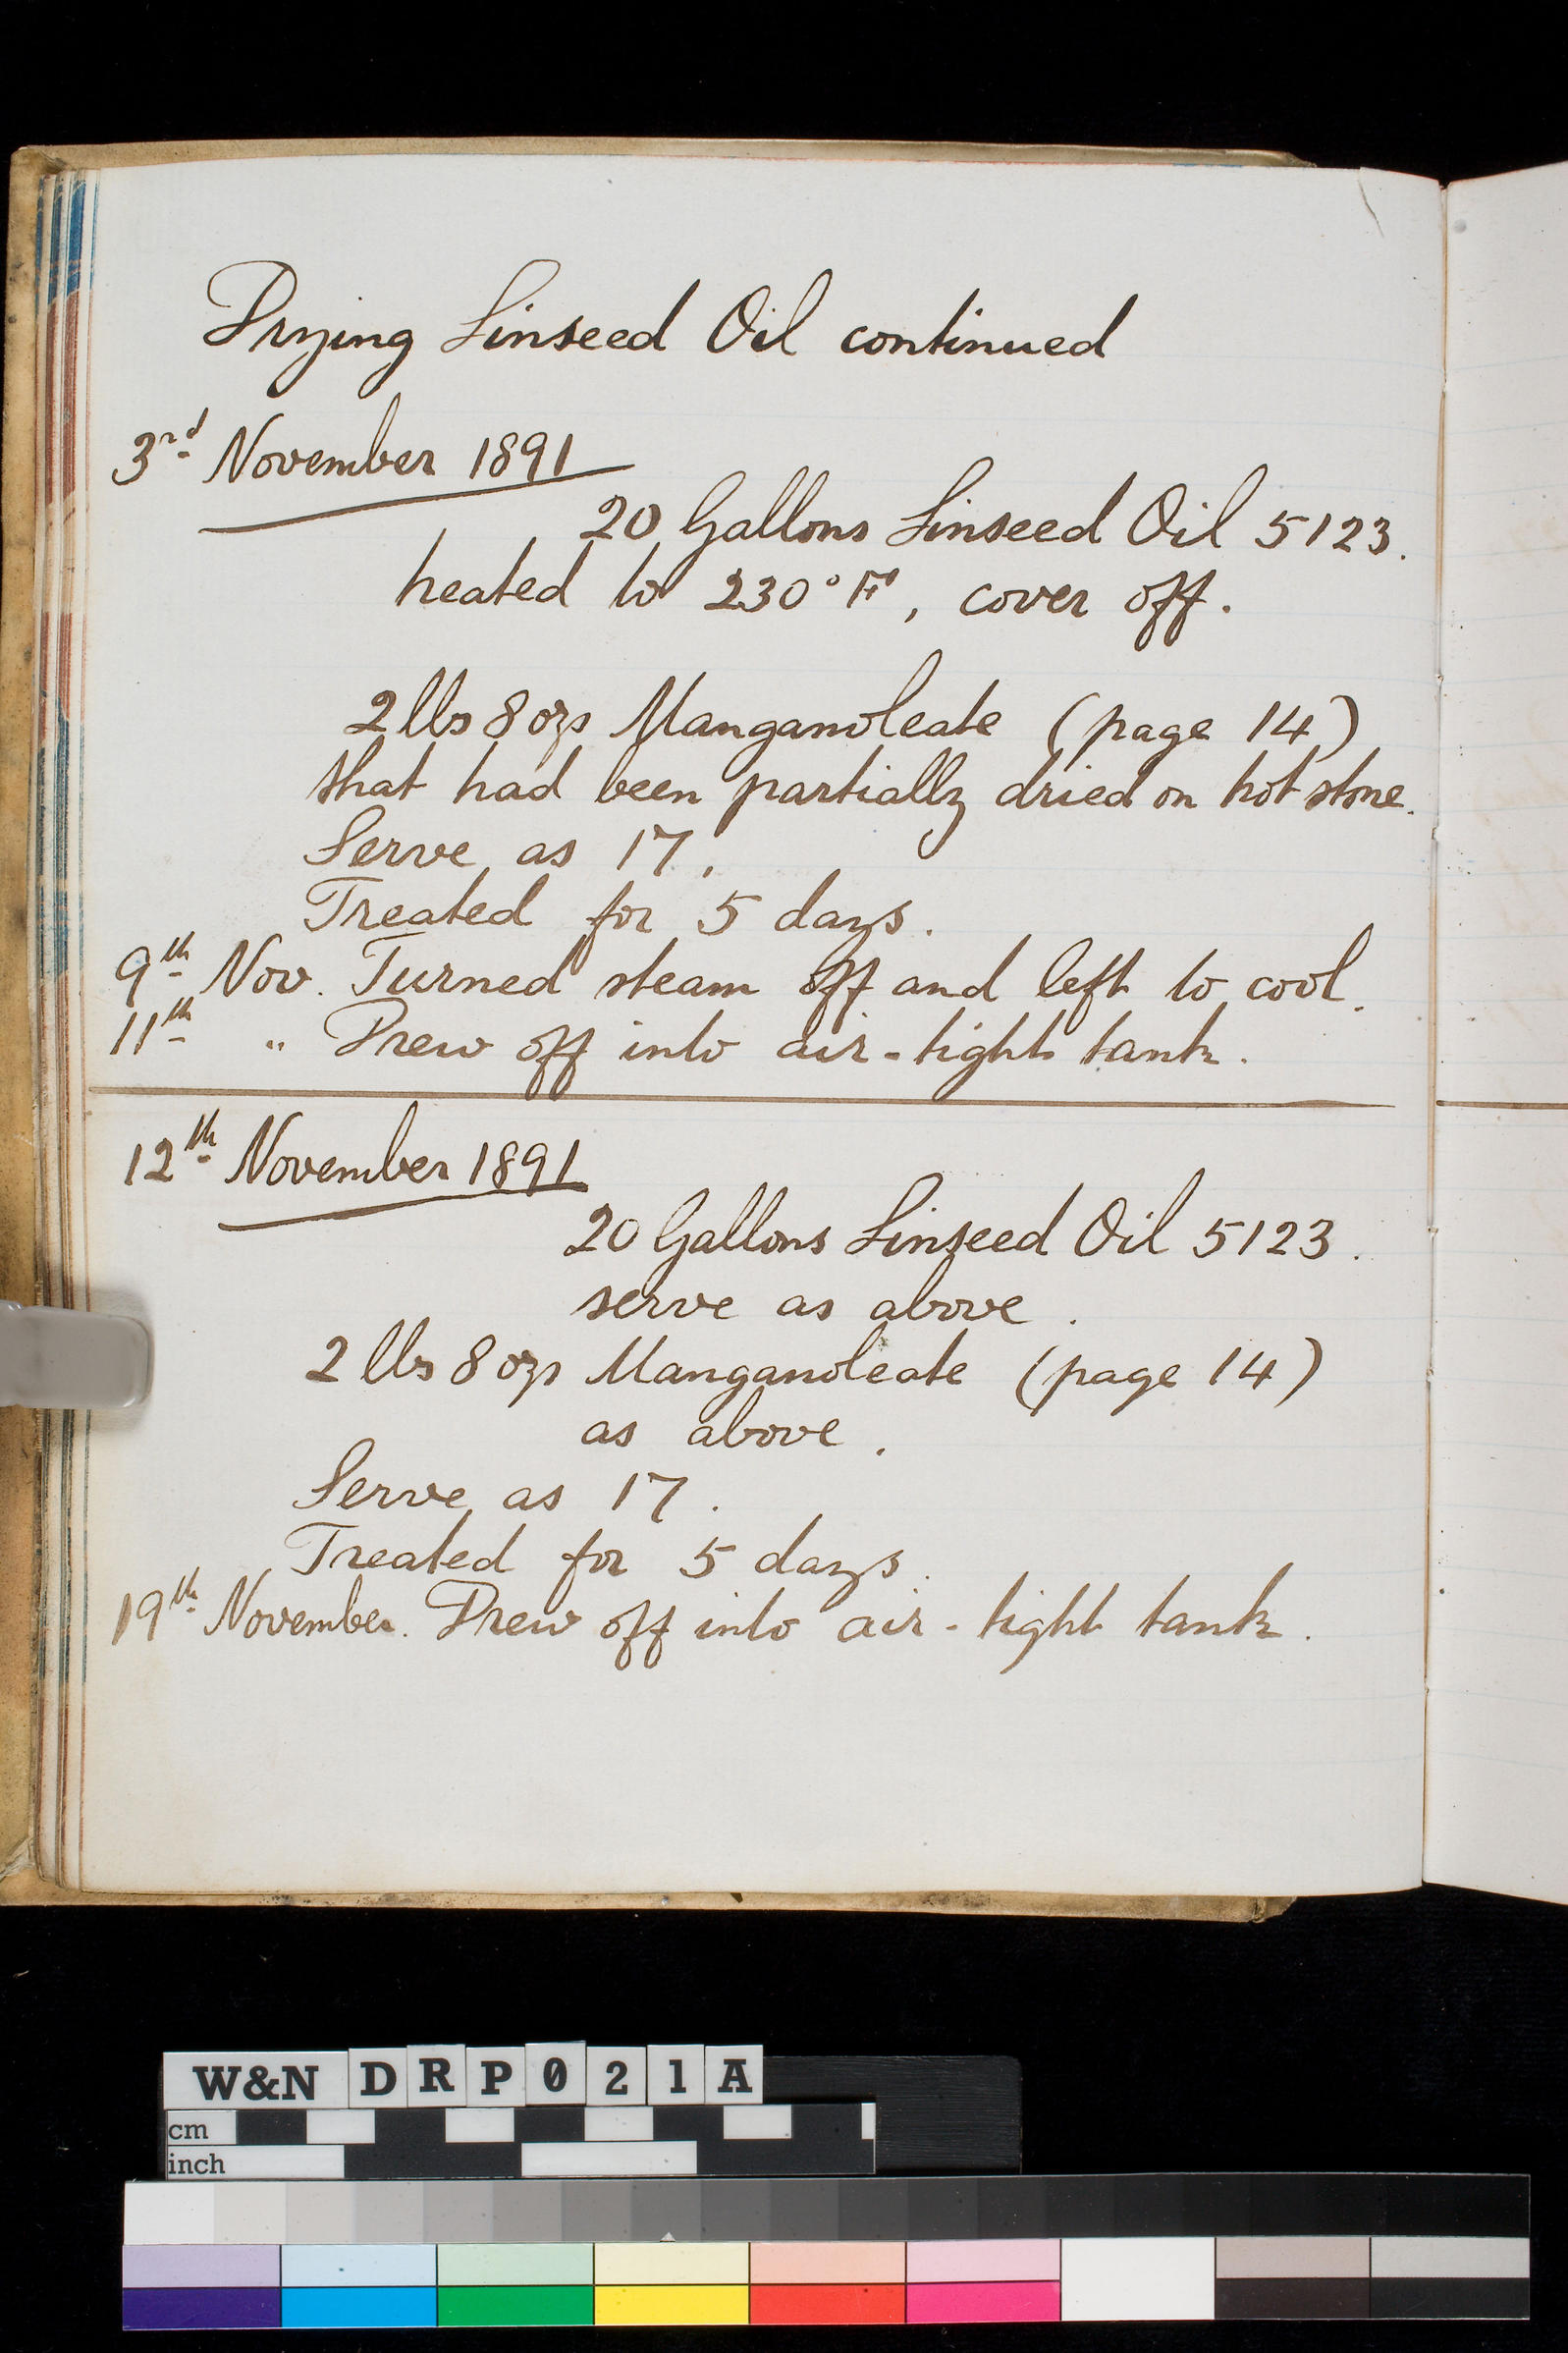 Drying Linseed Oil continued
3rd November 1891
20 Gallons Linseed Oil 5123.
heated to 230° F, cover off.
2 lbs 8 ozs Manganoleate (page 14)
that had been partially dried on hot stone.
Serve as 17.
Treated for 5 days.
9th Nov. Turned steam off and left to cool.
11th " Drew off into air-tight tank.
12th November 1891
20 Gallons Linseed Oil 5123.
serve as above.
2 lbs 8 ozs Manganoleate (page 14)
as above.
Serve as 17.
Treated for 5 days.
19th November. Drew off into air-tight tank.
W&N DRP021A
cm
inch